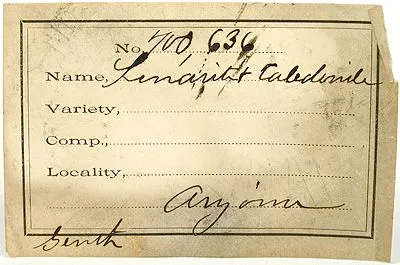 No. 700,636
Name, Linarite & Caledonite
Variety,
Comp.,
Locality,
Arizona
Genth